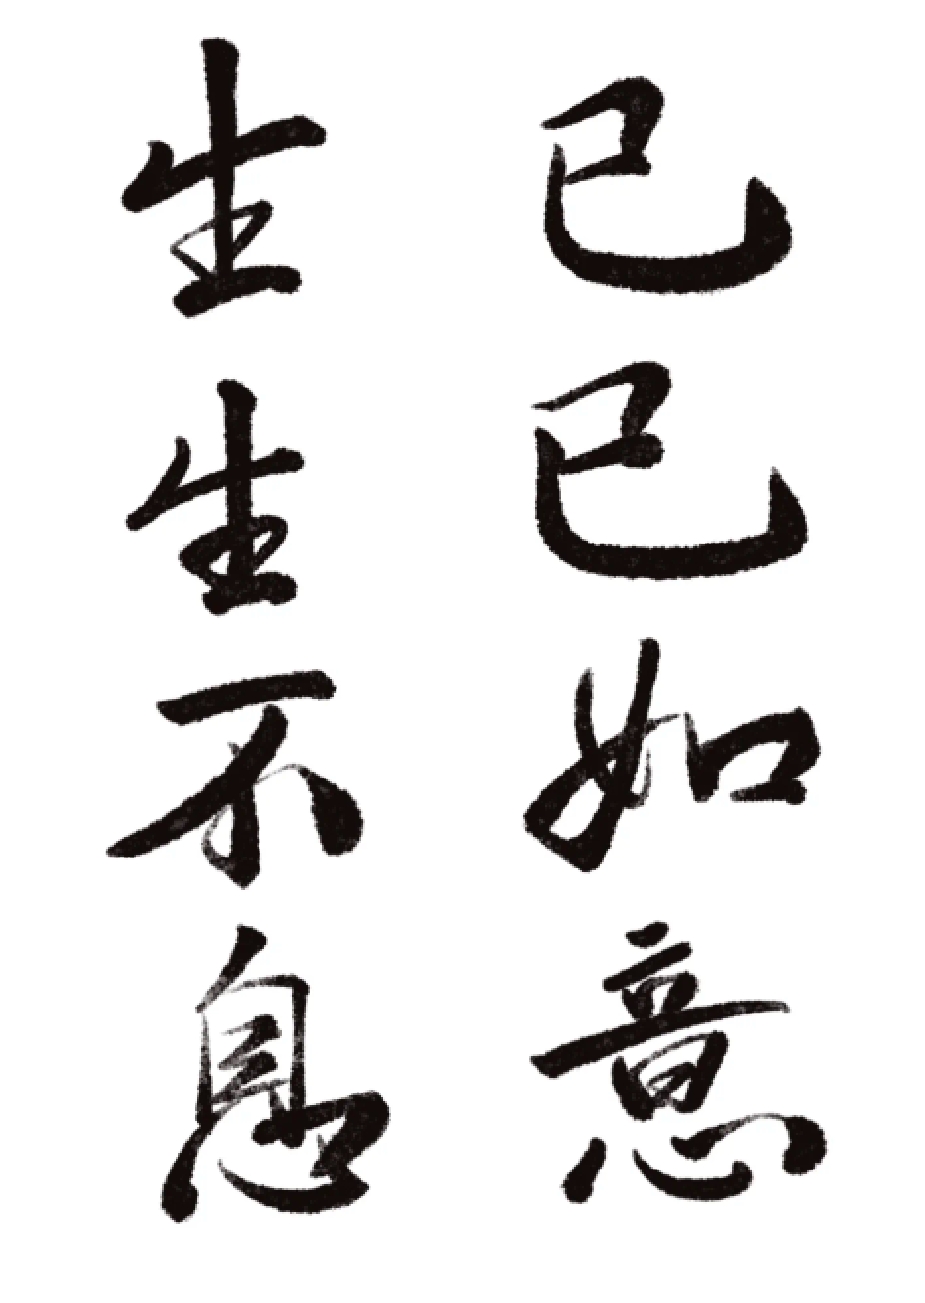 巳巳如意
生生不息